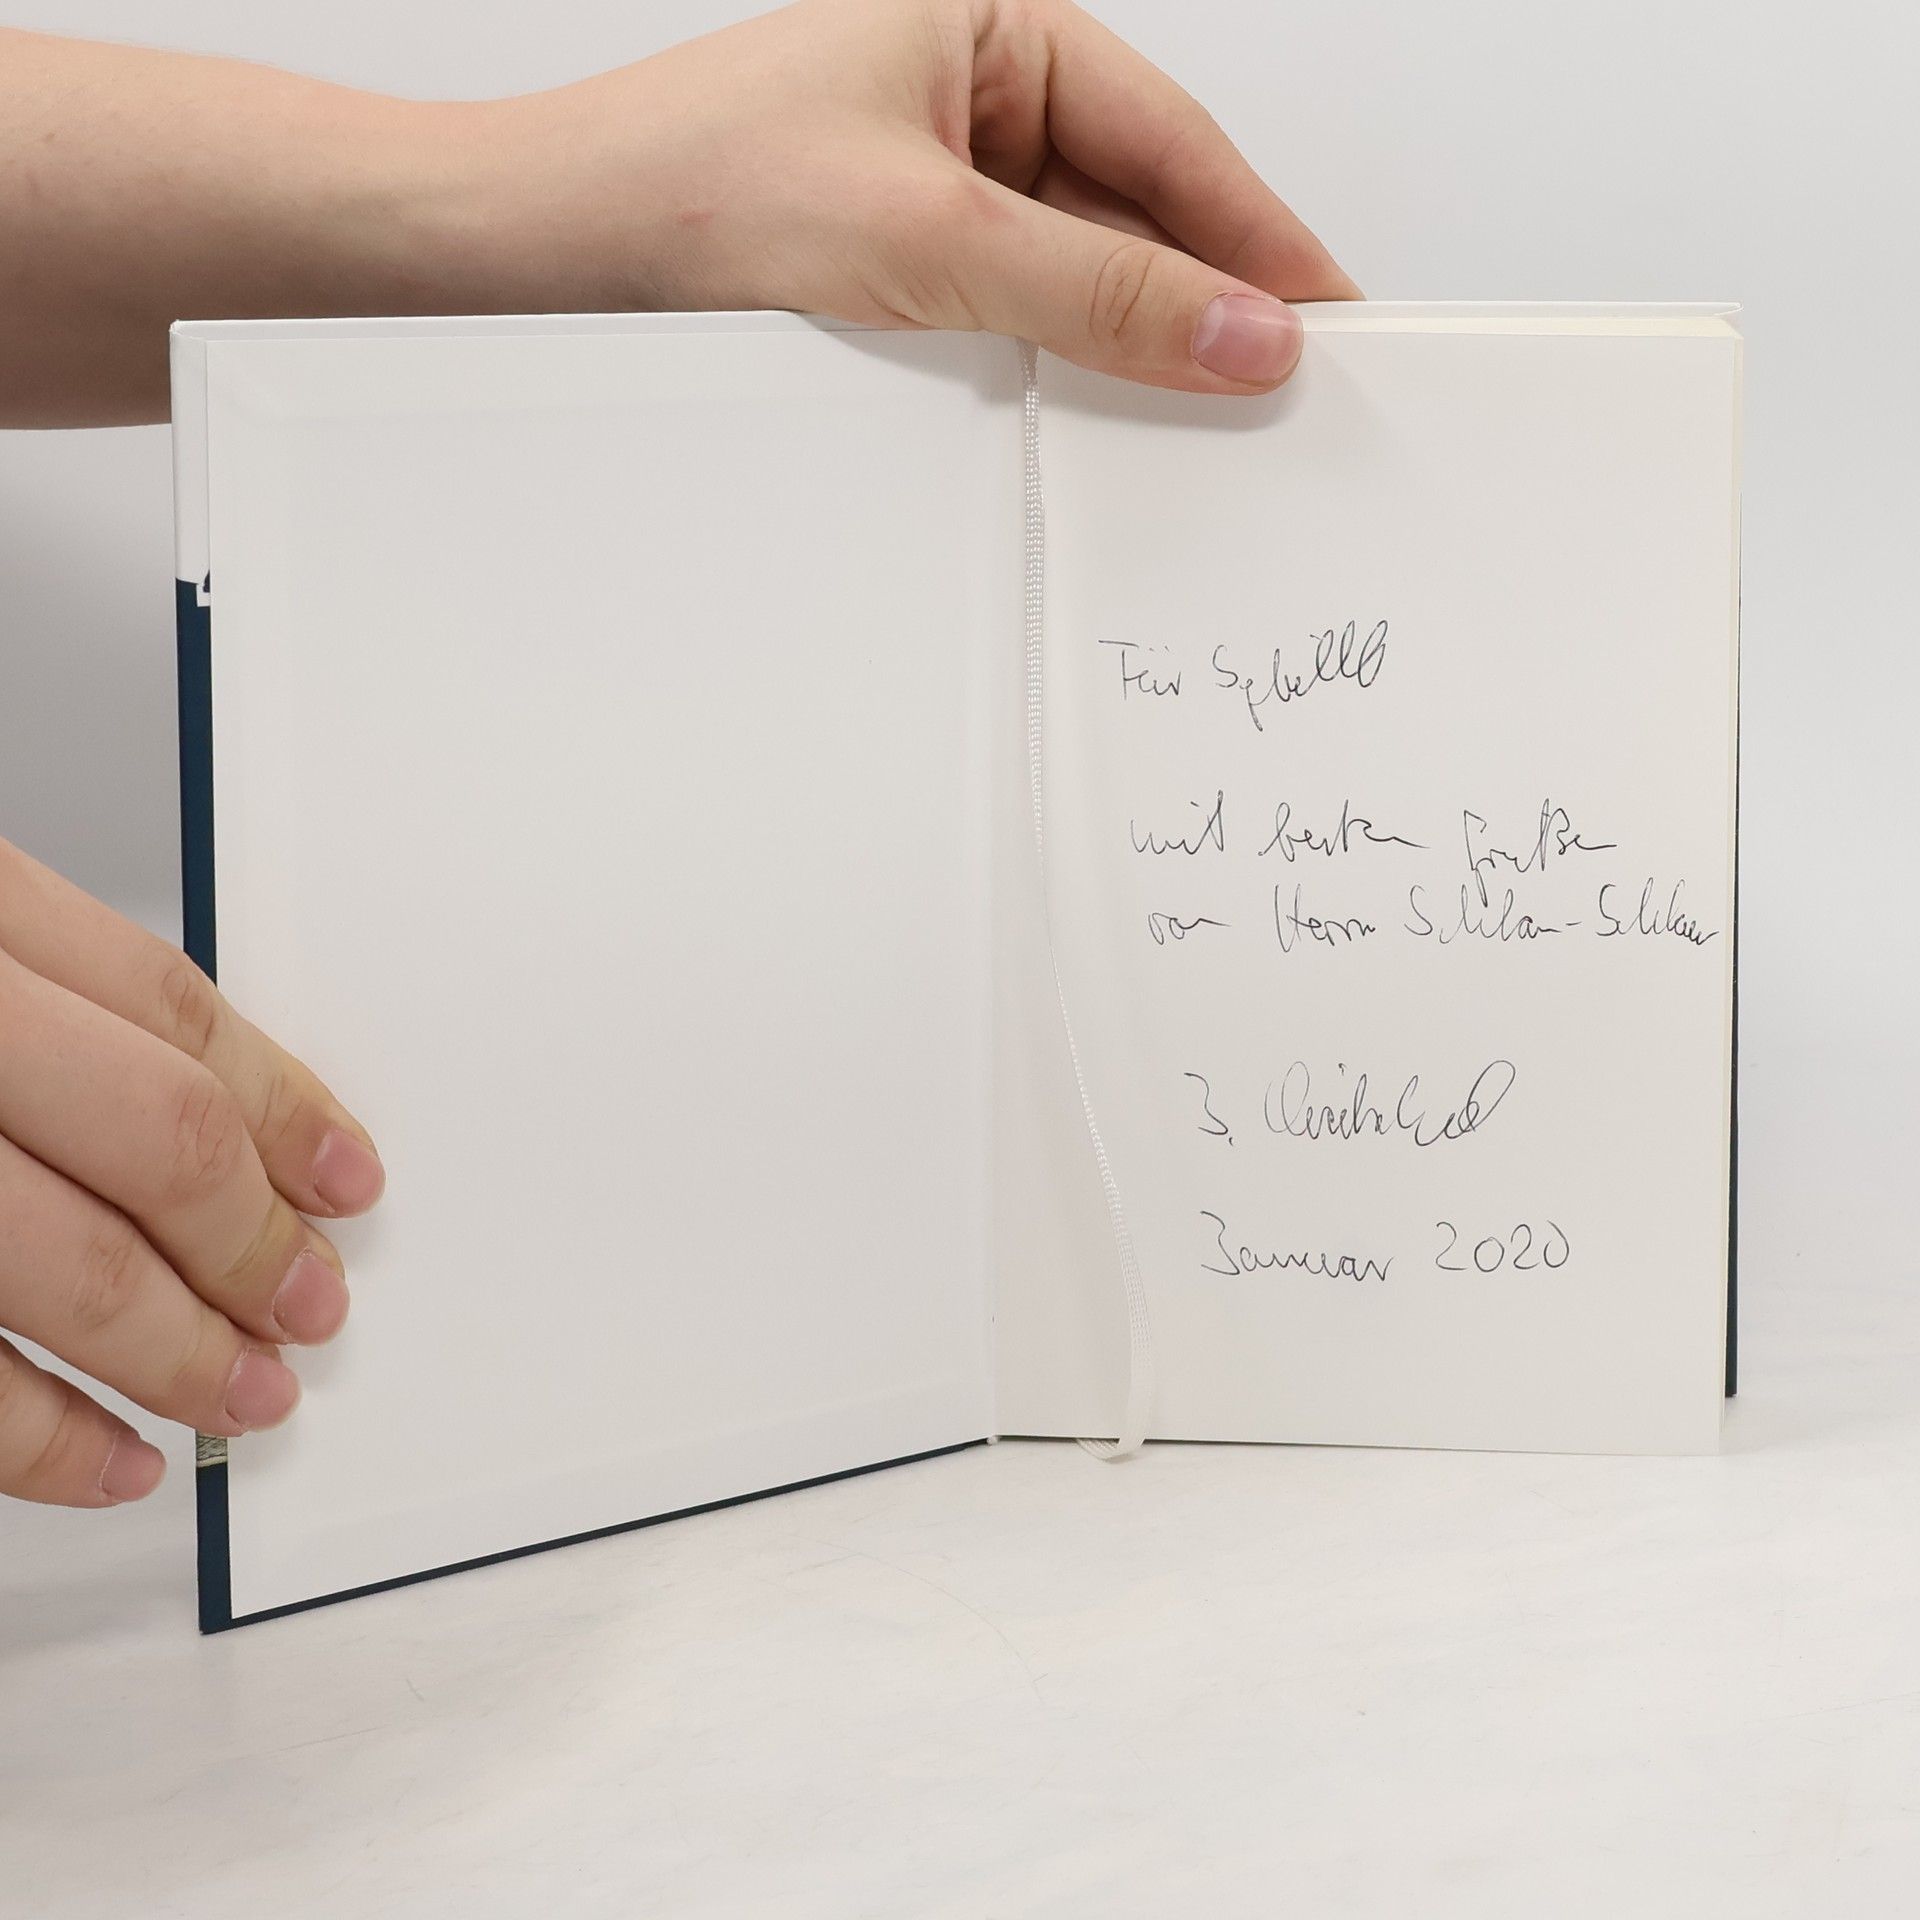 Für Sybille
mit besten Grüßen
von Herrn Schlau-Schlauer
J.
Januar 2020